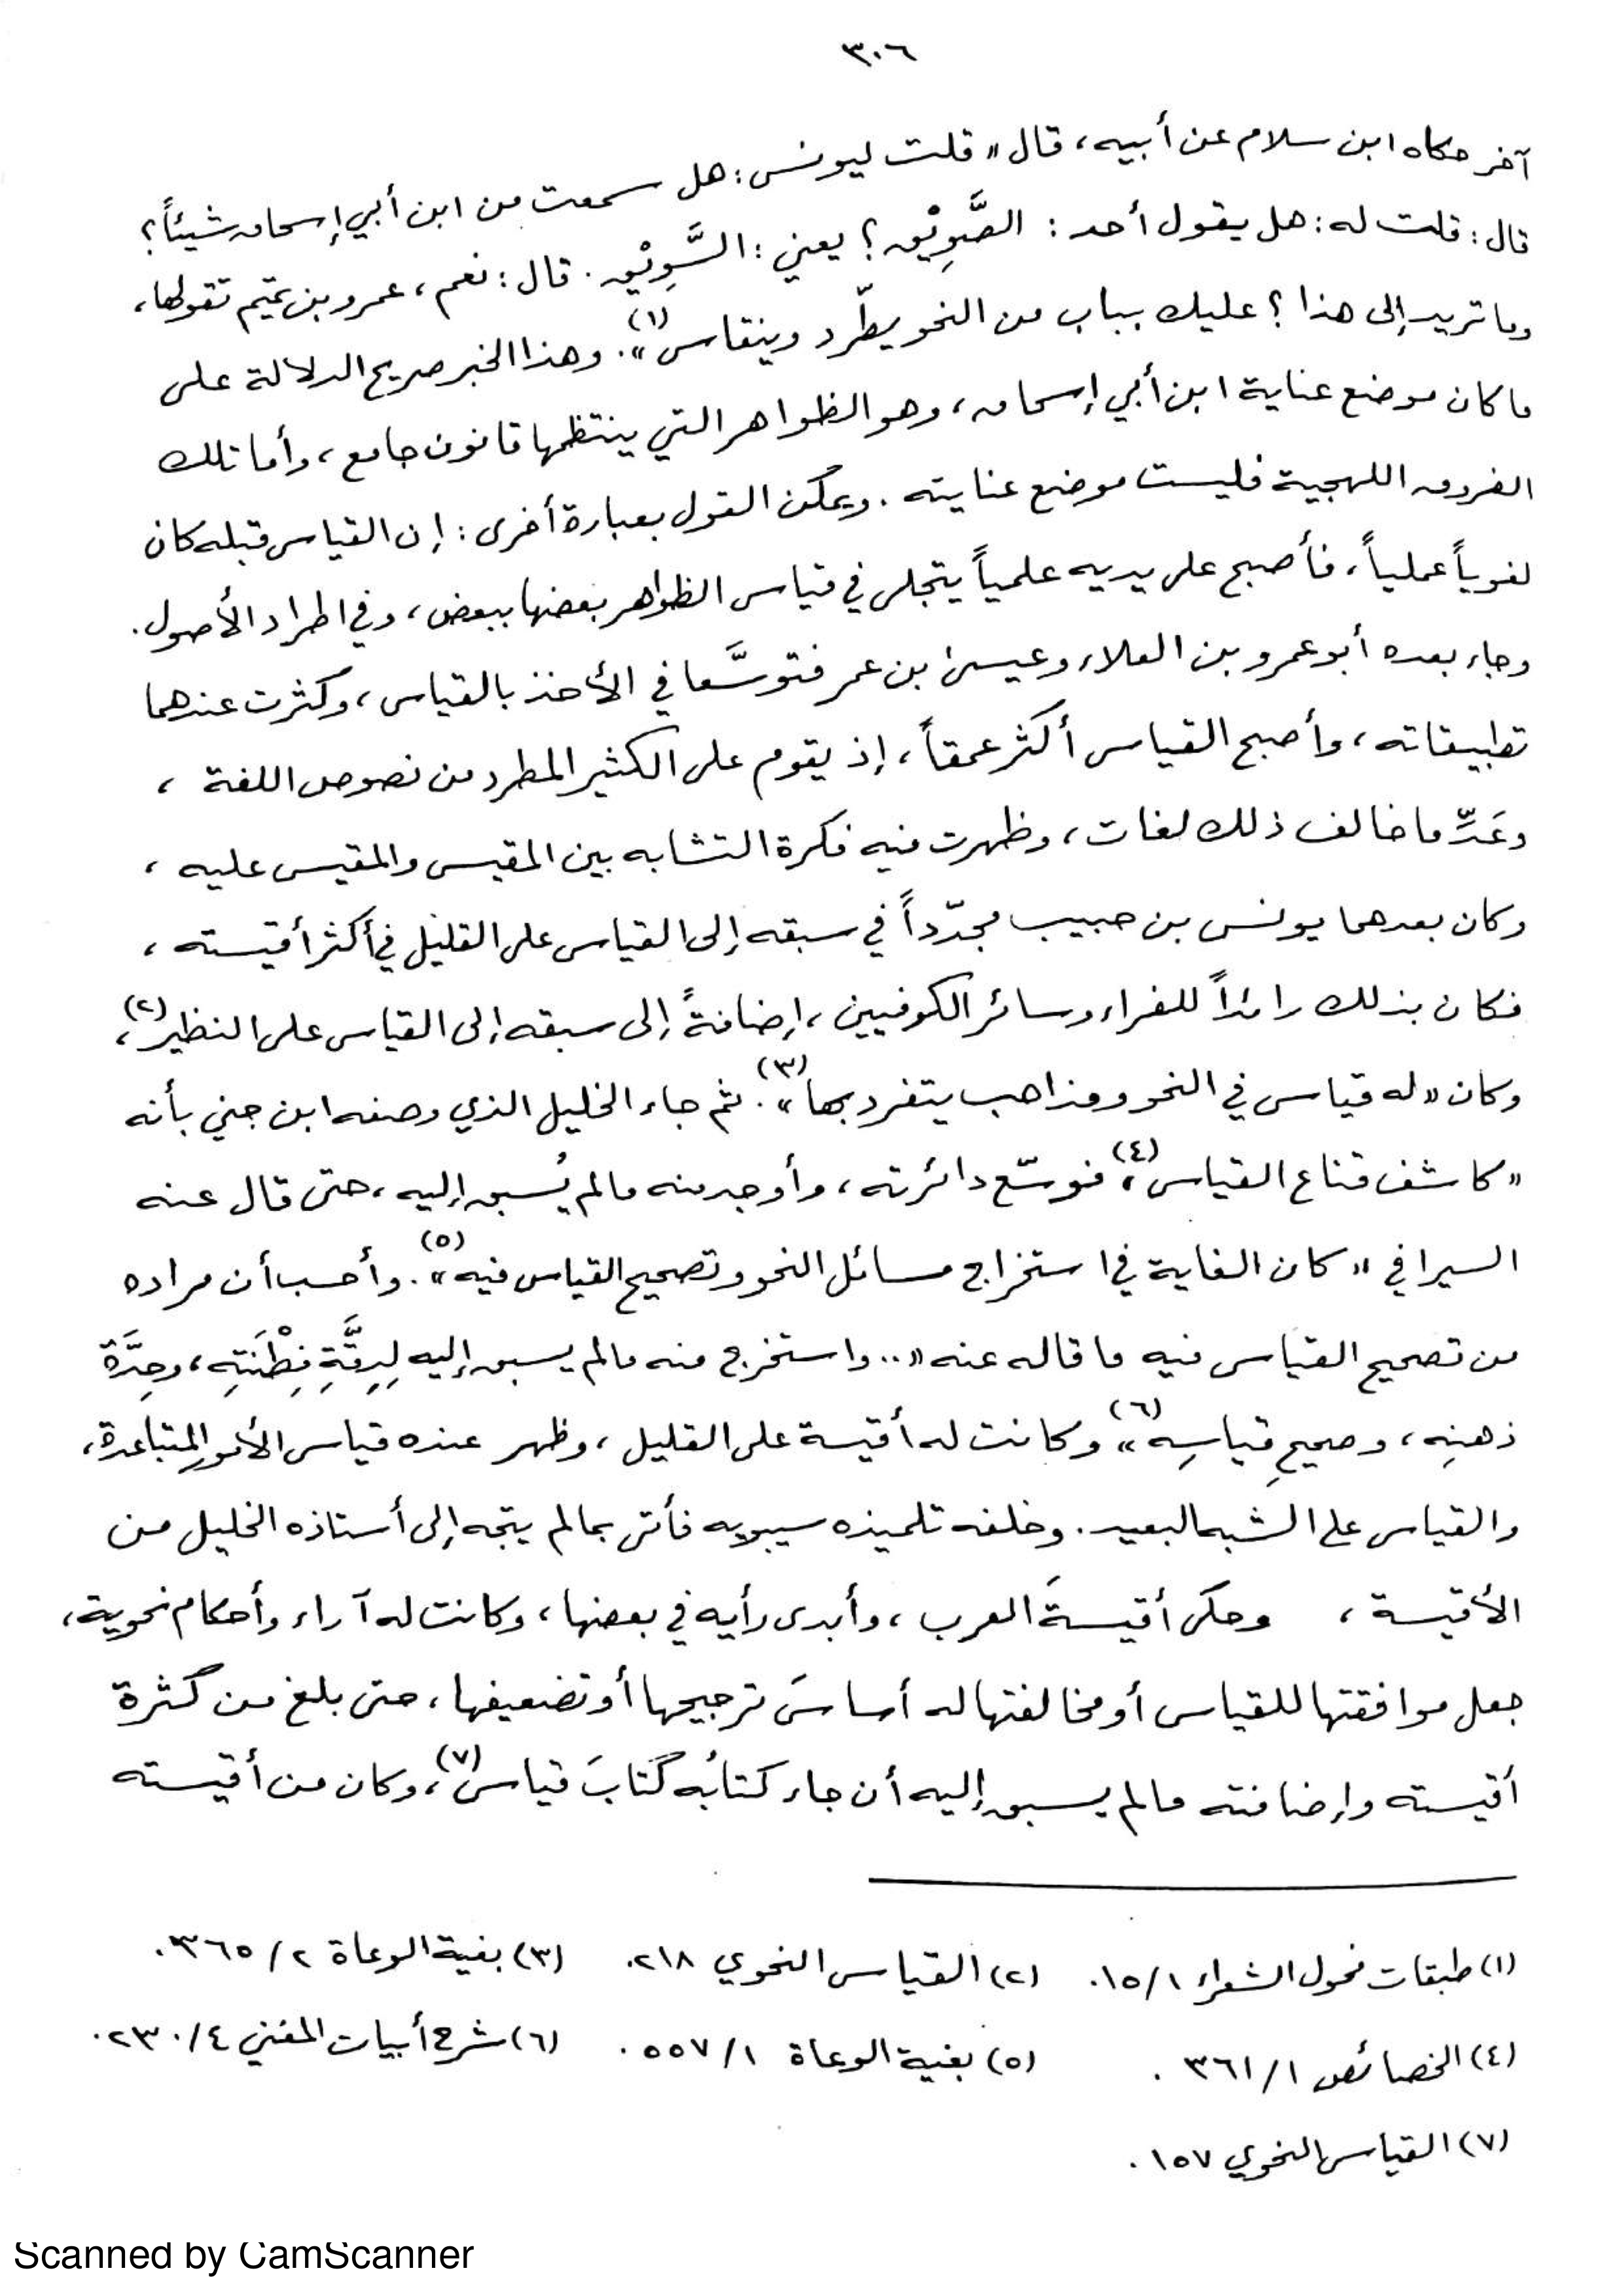 ٣٠٦
آخر حكاه ابن سلام عن أبيه، قال «قلت ليونس: هل سمعت من ابن أبي إسحاق شيئاً؟
قال: قلت له: هل يقول أحد: الصَّوِيْق؟ يعني: السَّوِيْق. قال: نعم، عمرو بن تميم تقولها،
وما تريد إلى هذا؟ عليك بباب من النحو يطّرد وينقاس»(١). وهذا الخبر صريح الدلالة على
ما كان موضع عناية ابن أبي إسحاق، وهو الظواهر التي ينتظمها قانون جامع، وأما تلك
الفروق اللهجية فليست موضع عنايته. ويمكن القول بعبارة أخرى: إن القياس قبله كان
لغوياً عملياً، فأصبح على يديه علمياً يتجلى في قياس الظواهر بعضها ببعض، وفي اطراد الأصول.
وجاء بعده أبو عمرو بن العلاء وعيسى بن عمر فتوسَّعا في الأخذ بالقياس، وكثرت عندهما
تطبيقاته، وأصبح القياس أكثر عمقاً، إذ يقوم على الكثير المطرد من نصوص اللغة،
وعَدِّ ما خالف ذلك لغات، وظهرت فيه فكرة التشابه بين المقيس والمقيس عليه،
وكان بعدهما يونس بن حبيب مجدّداً في سبقه إلى القياس على القليل في أكثر أقيسته،
فكان بذلك رائداً للفراء وسائر الكوفيين، إضافةً إلى سبقه إلى القياس على النظير(٢)،
وكان «له قياس في النحو ومذاهب يتفرد بها»(٣). ثم جاء الخليل الذي وصفه ابن جني بأنه
«كاشف قناع القياس(٤)، فوسّع دائرته، وأوجد منه مالم يُسبق إليه، حتى قال عنه
السيرافي «كان الغاية في استخراج مسائل النحو وتصحيح القياس فيه»(٥). وأحسب أن مراده
من تصحيح القياس فيه ما قاله عنه «.. واستخرج منه مالم يسبق إليه لِدِقَّةِ فِطْنَتِهِ، وحِدَّة
ذهنِه، وصحيحِ قياسِهِ»(٦) وكانت له أقيسة على القليل، وظهر عنده قياس الأمور المتباعدة،
والقياس على الشبه البعيد. وخلفه تلميذه سيبويه فأتى بمالم يتجه إلى أستاذه الخليل من
الأقيسة، وحكى أقيسةَ العرب، وأبدى رأيه في بعضها، وكانت له آراء وأحكام نحوية،
جعل موافقتها للقياس أو مخالفتها له أساسَ ترجيحها أو تضعيفها، حتى بلغ من كثرة
أقيسته وإضافته مالم يسبق إليه أن جاء كتابُه كتابَ قياس(٧)، وكان من أقيسته
(١) طبقات فحول الشعراء ١/ ١٥. (٢) القياس النحوي ٢١٨. (٣) بغية الوعاة ٢/ ٣٦٥.
(٤) الخصائص ١/ ٣٦١. (٥) بغية الوعاة ١/ ٥٥٧. (٦) شرح أبيات المغني ٤/ ٢٣٠.
(٧) القياس النحوي ١٥٧.
Scanned by CamScanner